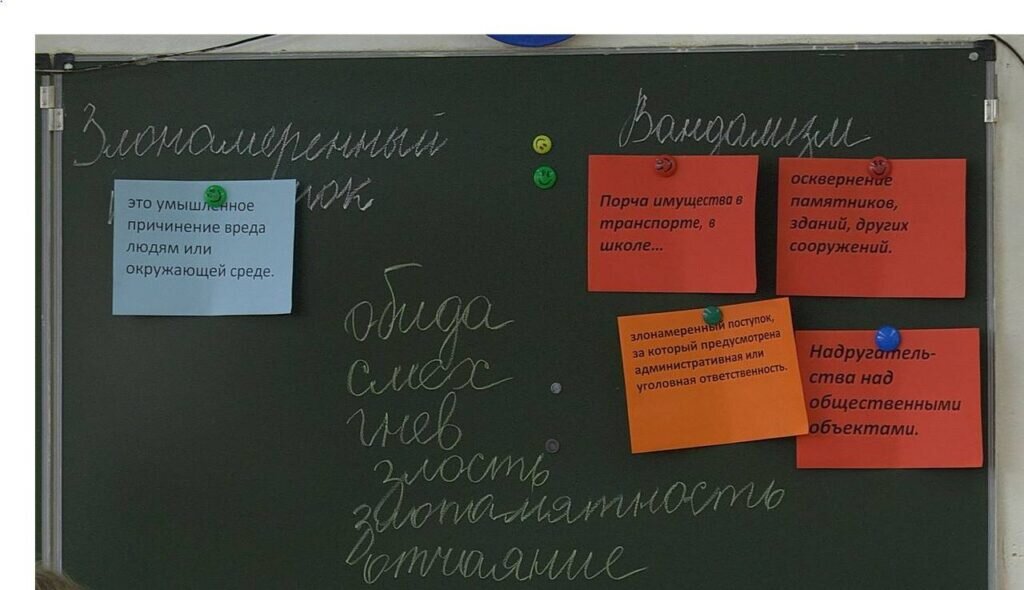 Злонамеренный
это умышленное
причинение вреда
людям или
окружающей среде.
Вандализм
Порча имущества в
транспорте, в
школе...
осквернение
памятников,
зданий, других
сооружений.
злонамеренный поступок,
за который предусмотрена
административная или
уголовная ответственность.
Надругатель-
ства над
общественными
объектами.
обида
смех
гнев
злость
злопамятность
отчаяние